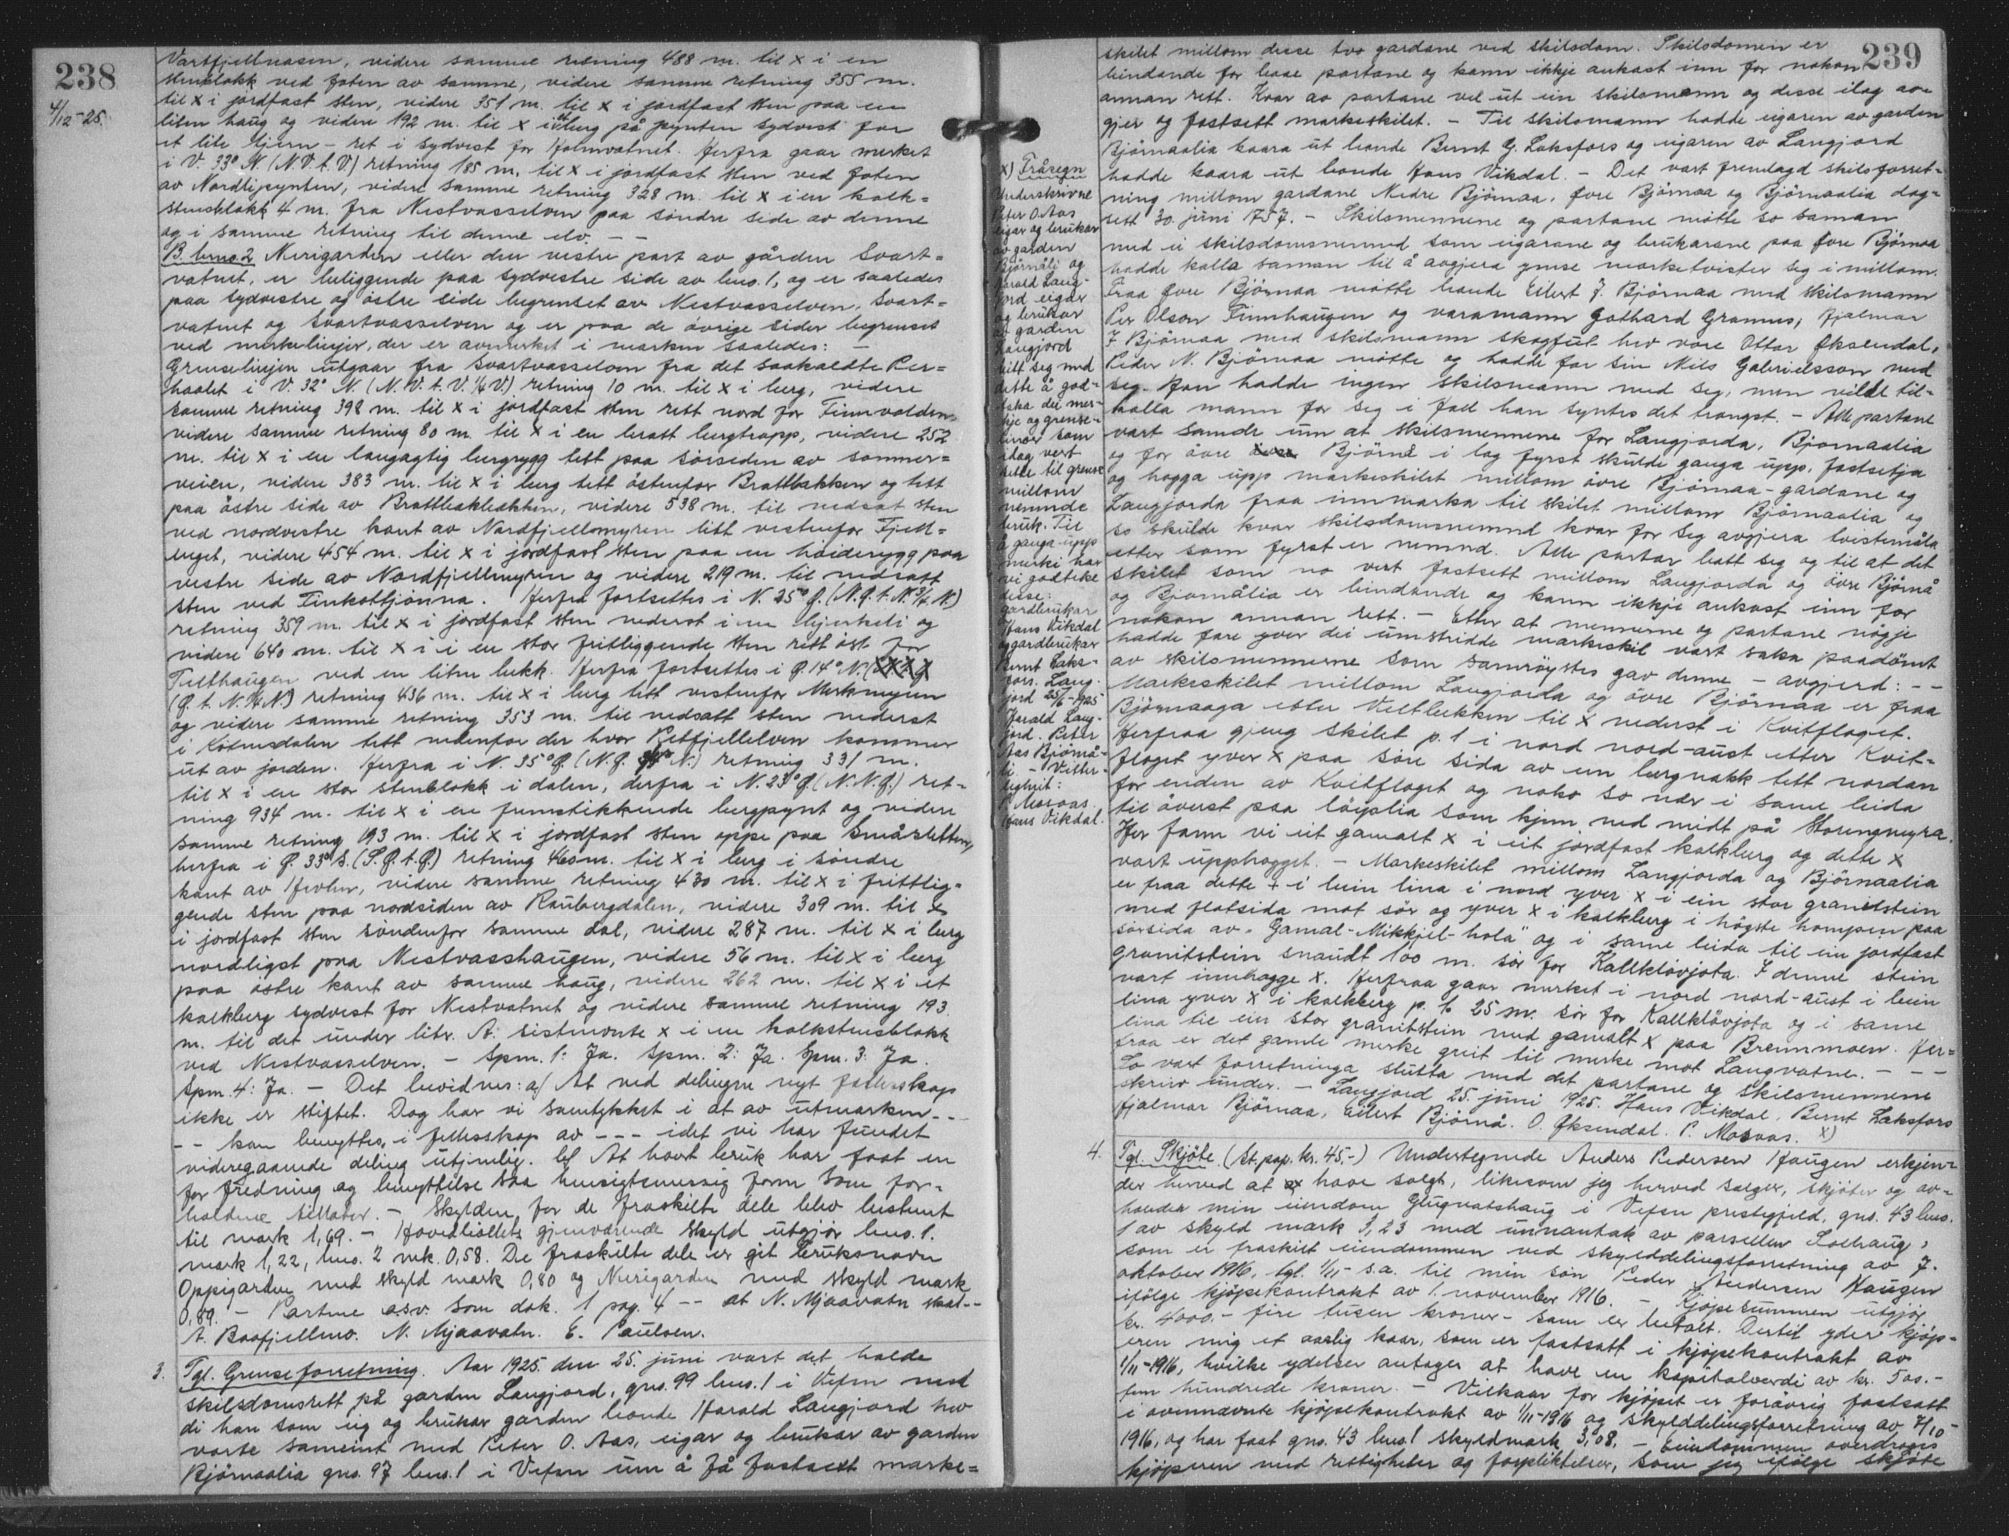 238
4/12-25.
Vartfjellnasen, videre samme retning 488 m. til x i en
stenblokk ved foten av samme, videre samme retning 355 m.
til x i jordfast sten, videre 351 m. til x i jordfast sten paa en
liten haug og videre 192 m. til x i berg på pynten sydvest for
et lite tjern - ret i sydvest for Holmvatnet. Herfra gaar merket
i V. 33° N. (N.V.t.V.) retning 185 m. til x i jordfast sten ved foten
av Nordlipynten, videre samme retning 328 m. til x i en kalk=
stensblokk 4 m. fra Nestvasselven paa söndre side av denne
og i samme retning til denne elv. - -
B. bruo 2 Nerigarden eller den vestre part av gården Svart=
vatnet, er beliggende paa sydvestre side av bno. 1, og er saaledes
paa sydvestre og östre side begrenset av Nestvasselven, Svart=
vatnet og Svartvasselven og er paa de övrige sider begrenset
ved merkelinjer, der er avmerket i marken saaledes: -
Grenselinjen utgaar fra Svartvasselven fra det saakaldte Per=
haalet i V. 32° N. (N.V.t.V.¼V.) retning 10 m. til x i berg, videre
samme retning 398 m. til x i jordfast sten rett nord for Finnvolden
videre samme retning 80 m. til x i en bratt bergtrapp, videre 252
m. til x i en langagtig bergrygg tett paa sörsiden av sommer=
veien, videre 383 m. til x i berg tett östenfor Brattbakken og tett
paa östre side av Brattbakbækken, videre 538 m. til nedsat sten
ved nordvestre kant av Nordfjellmyren litt vestenfor Fjell=
beget, videre 454 m. til x i jordfast sten paa en höiderygg paa
vestre side av Nordfjellmyren og videre 219 m. til nedsatt
sten ved Finkottjönna. Herfra fortsettes i N. 25° Ø. (N.Ø.t.N.¾N.)
retning 359 m. til x i jordfast sten nederst i en bjerkeli og
videre 640 m. til x i i en stor fritliggende sten rett öst for
Tetthaugen ved en liten bekk. Herfra fortsettes i Ø. 14° N. (
(Ø.t.N.¼N.) retning 436 m. til x i berg tett vestenfor Merkmyren
og videre samme retning 353 m. til nedsatt sten nederst
i Kölnesdalen tett nedenfor der hvor Retfjellelven kommer
ut av jorden. Herfra i N. 35° Ø. (N.Ø. N.) retning 331 m.
til x i en stor stenblokk i dalen, derfra i N. 23° Ø. (N.N.Ø.) ret=
ning 934 m. til x i en fremstikkende bergpynt og videre
samme retning 193 m. til x i jordfast sten oppe paa Smårletten,
herfra i Ø. 33° S. (S.Ø.t.Ø.) retning 460 m. til x i berg i söndre
kant av Hvolm, videre samme retning 430 m. til x i frittlig=
gende sten paa nordsiden av Raubergdalen, videre 309 m. til x
i jordfast sten söndenfor samme dal, videre 287 m. til x i berg
nordligst paa Nestvasshaugen, videre 56 m. til x i berg
paa östre kant av samme haug, videre 262 m. til x i et
kalkberg sydvest for Nestvatnet og videre samme retning 193
m. til det under litr. A. sistnevnte x i en kalkstensblokk
ved Nestvasselven. - Spm. 1: Ja. Spm. 2: Ja. Spm. 3: Ja.
Spm. 4: Ja. - Det bevidnes: a/ At ved delingen nyt fællesskap
ikke er stiftet. Dog har vi samtykket i at av utmarken - -
- - kan benyttes i fellesskap av - - - idet vi har fundet
videregaaende deling utjenlig. b/ At hvert bruk har faat en
for fredning og benyttelse saa hensigtsmessig form som for-
holdene tillater. - Skylden for de fraskilte dele blev bestemt
til mark 1,69. - Hovedbölets gjenværende skyld utgjör bno. 1.
mark 1,22, bno. 2 mrk. 0,58. De fraskilte dele er git bruksnavn
Oppigarden med skyld mark 0,80 og Nerigarden med skyld mark
0,89. - Partene asv. som dok. 1 pag. 4 - - at N. Mjaavatn skal - -
A. Baafjellmo. N. Mjaavatn. E. Paulsen.
3. Tgl. Grenseforretning. Aar 1925 den 25. juni vart det halde
skilsdomsrett på garden Langjord, gno. 99 bno. 1 i Vefsn med
di han som eig og brukar garden bonde Harald Langjord hev
vorte sameint med Peter O. Aas, eigar og brukar av garden
Björnaalia gno. 97 bno. 1 i Vefsn um å få fastsett marke=
239
skilet millom disse tvo gardane ved skilsdom. Skilsdomen er
bindande for baae partane og kann ikkje ankast inn for nokon
annan rett. Kvar av partane vel ut ein skilsmann og desse ilag av=
gjer og fastsett markeskilet. - Til skilsmann hadde eigaren av garden
Björnaalia kaara ut bonde Bernt G. Laksfors og eigaren av Langjord
hadde kaara ut bonde Hans Vikdal. - Det vart framlagd skilsforret=
ning millom gardane Nedre Björnaa, Övre Björnaa og Björnaalia dag=
sett 30. juni 1757. - Skilsmennene og partane mötte so saman
med ei skilsdomsnemnd som eigarane og brukarane paa Övre Björnaa
hadde kalla saman til å avgjera ymse marketvister seg i millom.
Fraa Övre Björnaa mötte bonde Edert J. Björnaa med skilsmann
Per Olson Finnhaugen og varamann Gothard Granmo, Hjalmar
J. Björnaa med skilsmann skogfut hev vore Ottar Øksendal,
Peder N. Björnaa mötte og hadde for sin Nils Gabrielsson med
seg. Han hadde ingen skilsmann med seg, men vilde til=
kalla mann for seg i fall han syntes det trongst. - Alle partane
vart samde um at skilsmennene for Langjorda, Björnaalia
og for övre Björnå i lag fyrst skulde ganga upp, fastsetja
og hogga upp markeskilet millom övre Björnaa-gardane og
Langjorda fraa innmarka til skilet millom Björnaalia og
so skulde kvar skilsdomsnemnd kvar for seg avgjera tvistemåla
etter som fyrst er nemnd. Alle partar batt seg og til at det
skilet som no vert fastsett millom Langjorda og övre Björnå
og Björnålia er bindande og kann ikkje ankast inn for
nokon annan rett. - Etter at mennerne og partane nögje
hadde fare yver dei umstridde markeskil vart saka paadömt
av skilsmennerne som samröystes gav denne - avgjerd: - -
Markeskilet millom Langjorda og övre Björnaa er fraa
Björnaaga etter Veltbekken til x nederst i Kvitflaget.
Herfraa gjeng skilet p. 1 i nord nord-aust etter Kvit=
flaget yver x paa söre sida av en bergnakk tett nordan
for enden av Kvitflaget og noko so nær i same leida
til överst paa löyplia som kjem ned midt på Storengmyra.
Her fann vi eit gamalt x i eit jordfast kalkberg og dette x
vart upphogget. - Markeskilet millom Langjorda og Björnaalia
er fraa dette + i bein lina i nord yver x i ein stor granitstein
med flatsida mot sör og yver x i kalkberg i högste hompen paa
sörsida av "Gamal-Mikkjel-hola" og i same leida til ein jordfast
granitstein snaudt 100 m. sör for Kallklövjota. I denne stein
vart innhogge x. Herfraa gaar merket i nord nord-aust i bein
lina yver x i kalkberg p. 1. 25 m. sör for Kallklövjota og i same
lina til ein stor granitstein med gamalt x paa Brennmoen. Her=
fraa er det gamle merke greit til merke mot Langvatne. - - -
So vart forretninga slutta med det partane og skilsmennene
skriv under. - Langjord 25. juni 1925. Hans Vikdal. Bernt Laksfors
Hjalmar Björnaa, Edert Björnå. O. Øksendal. P. Mosvas. x)
x) Fråsegn
Underskrivne
Peter O. Aas
eigar og brukar
av garden
Björnåli og
Harald Lang-
jord eigar
og brukar
av garden
Langjord
bitt seg med
dette å god-
taka dei mer-
kje og grense-
linor som
idag vert
sette til grense
millom
nemnde
bruk. Til
å ganga upp
merki har
vi godteke
disse:
gardbrukar
Hans Vikdal
og gardbrukar
Bernt Laks-
fors. Lang-
jord 25/6-1925
Harald Lang-
jord. Peter
Aas Björnå-
li - Vitter-
legheit:
P. Mosvas.
Hans Vikdal.
4. Tgl. Skjöte (st. pap. kr. 45.-) Undertegnede Anders Pedersen Haugen erkjen=
der herved at have solgt, likesom jeg herved sælger, skjöter og av=
hender min eiendom Glugvatshaug i Vefsn prestegjeld, gno. 43 bno.
1 av skyld mark 3,23 med unnantak av parsellen Solhaug,
som er fraskilt eiendommen ved skylddelingsforretning av 7.
oktober 1916, tgl. 1/11- s.a. til min sön Peder Andersen Haugen
ifölge kjöpekontrakt av 1. november 1916. - Kjöpesummen utgjör
kr. 4000.- fire tusen kroner - som er betalt. Dertil yder kjöp=
eren mig et aarlig kaar, som er fastsatt i kjöpekontrakt av
1/11-1916, hvilke ydelser antages at have en kapitalverdi av kr. 500.-
fem hundrede kroner. - Vilkaar for kjöpet er forövrig fastsatt
i ovennævnte kjöpekontrakt av 1/11-1916 og skylddelingsforretning av 7/10-
1916, og har faat gno. 43 bno. 1 skyldmark 3,08. - Eiendommen overdrages
kjöperen med rettigheter og forpliktelser, som jeg ifölge skjöte